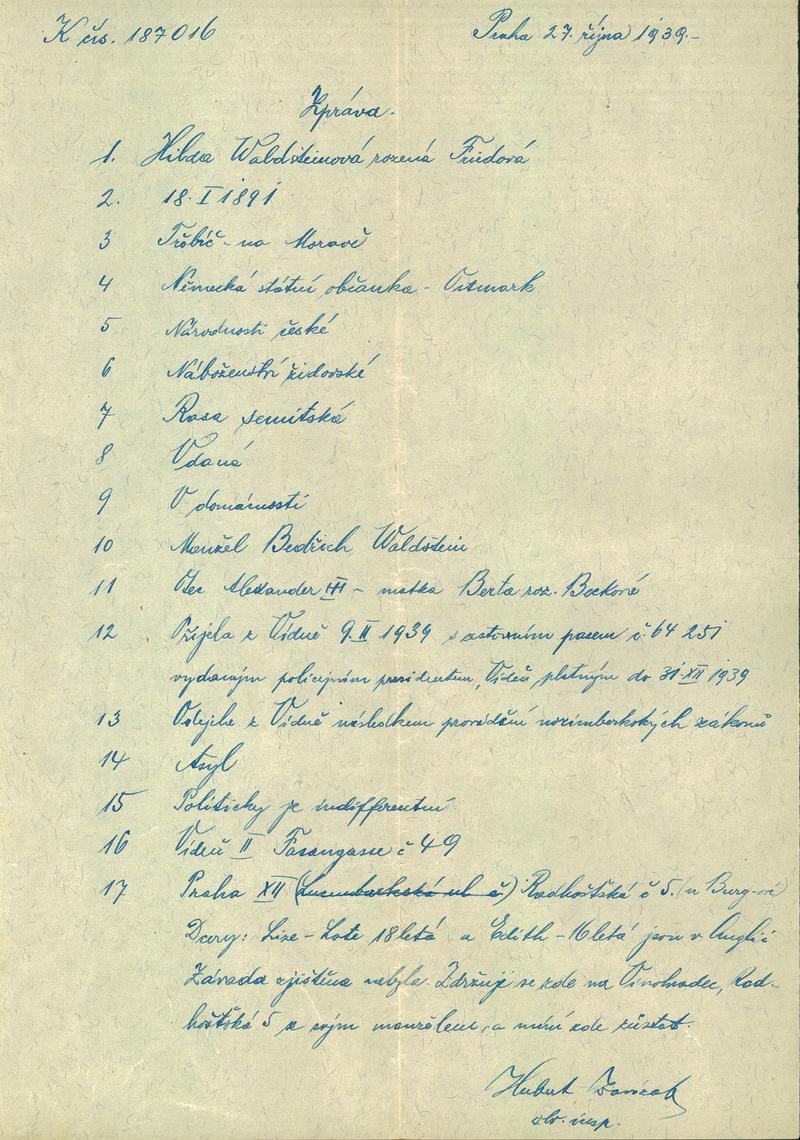 K čís. 187016
Praha 27. října 1939.-
Zpráva.
1. Hilda Waldsteinová rozená Friedová
2. 18. I 1891
3 Třebíč - na Moravě
4 Německá státní občanka - Ostmark
5 Národnosti české
6 Náboženství židovské
7 Rasa semitská
8 Vdaná
9 V domácnosti
10 Manžel Bedřich Waldstein
11 Otec Alexander - matka Berta roz.
12 Přijela z Vídně 9. II 1939 s cestovním pasem č. 64 251
vydaným policejním presidentem, Vídeň, platným do 31. XII 1939
13 Odejela z Vídně následkem provádění norimberských zákonů
14 Asyl
15 Politicky je indifferentní
16 Vídeň II Fasangasse č 49
17 Praha XII (Lucemburská ul č) Radhoštská č 5. (u
Dcery: Lize - Lote 18letá a Edith - 16letá jsou v Anglii
Závada zjištěna nebyla. Zdržuje se zde na Vinohradec, Rad-
hoštská 5 se svým manželem, a míní zde zůstat.
Hubert
insp.